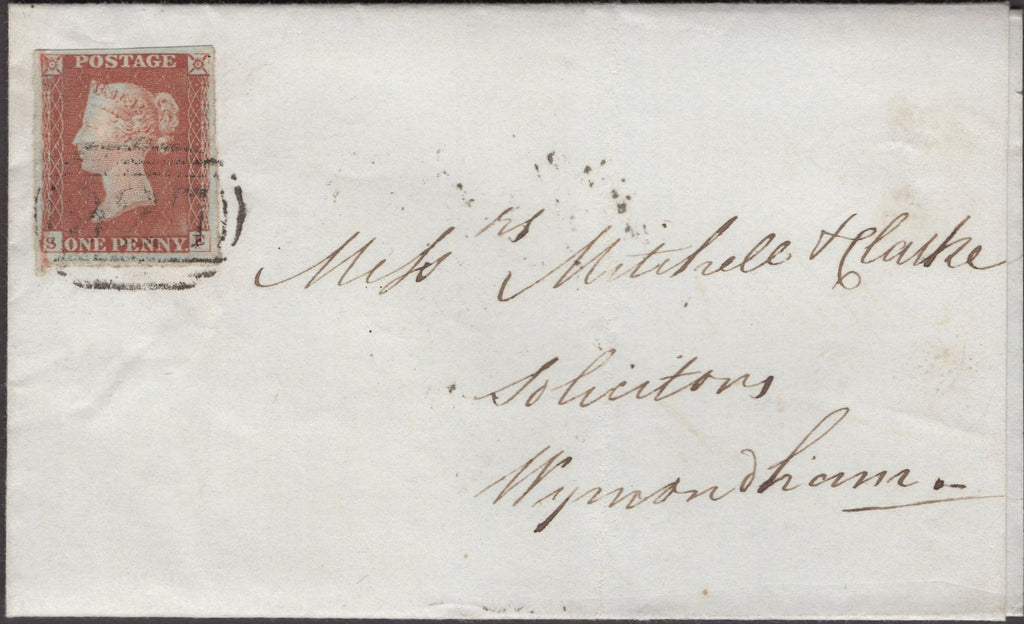 POSTAGE
S ONE PENNY
Messrs Mitchell & Clarke
Solicitors
Wymondham.